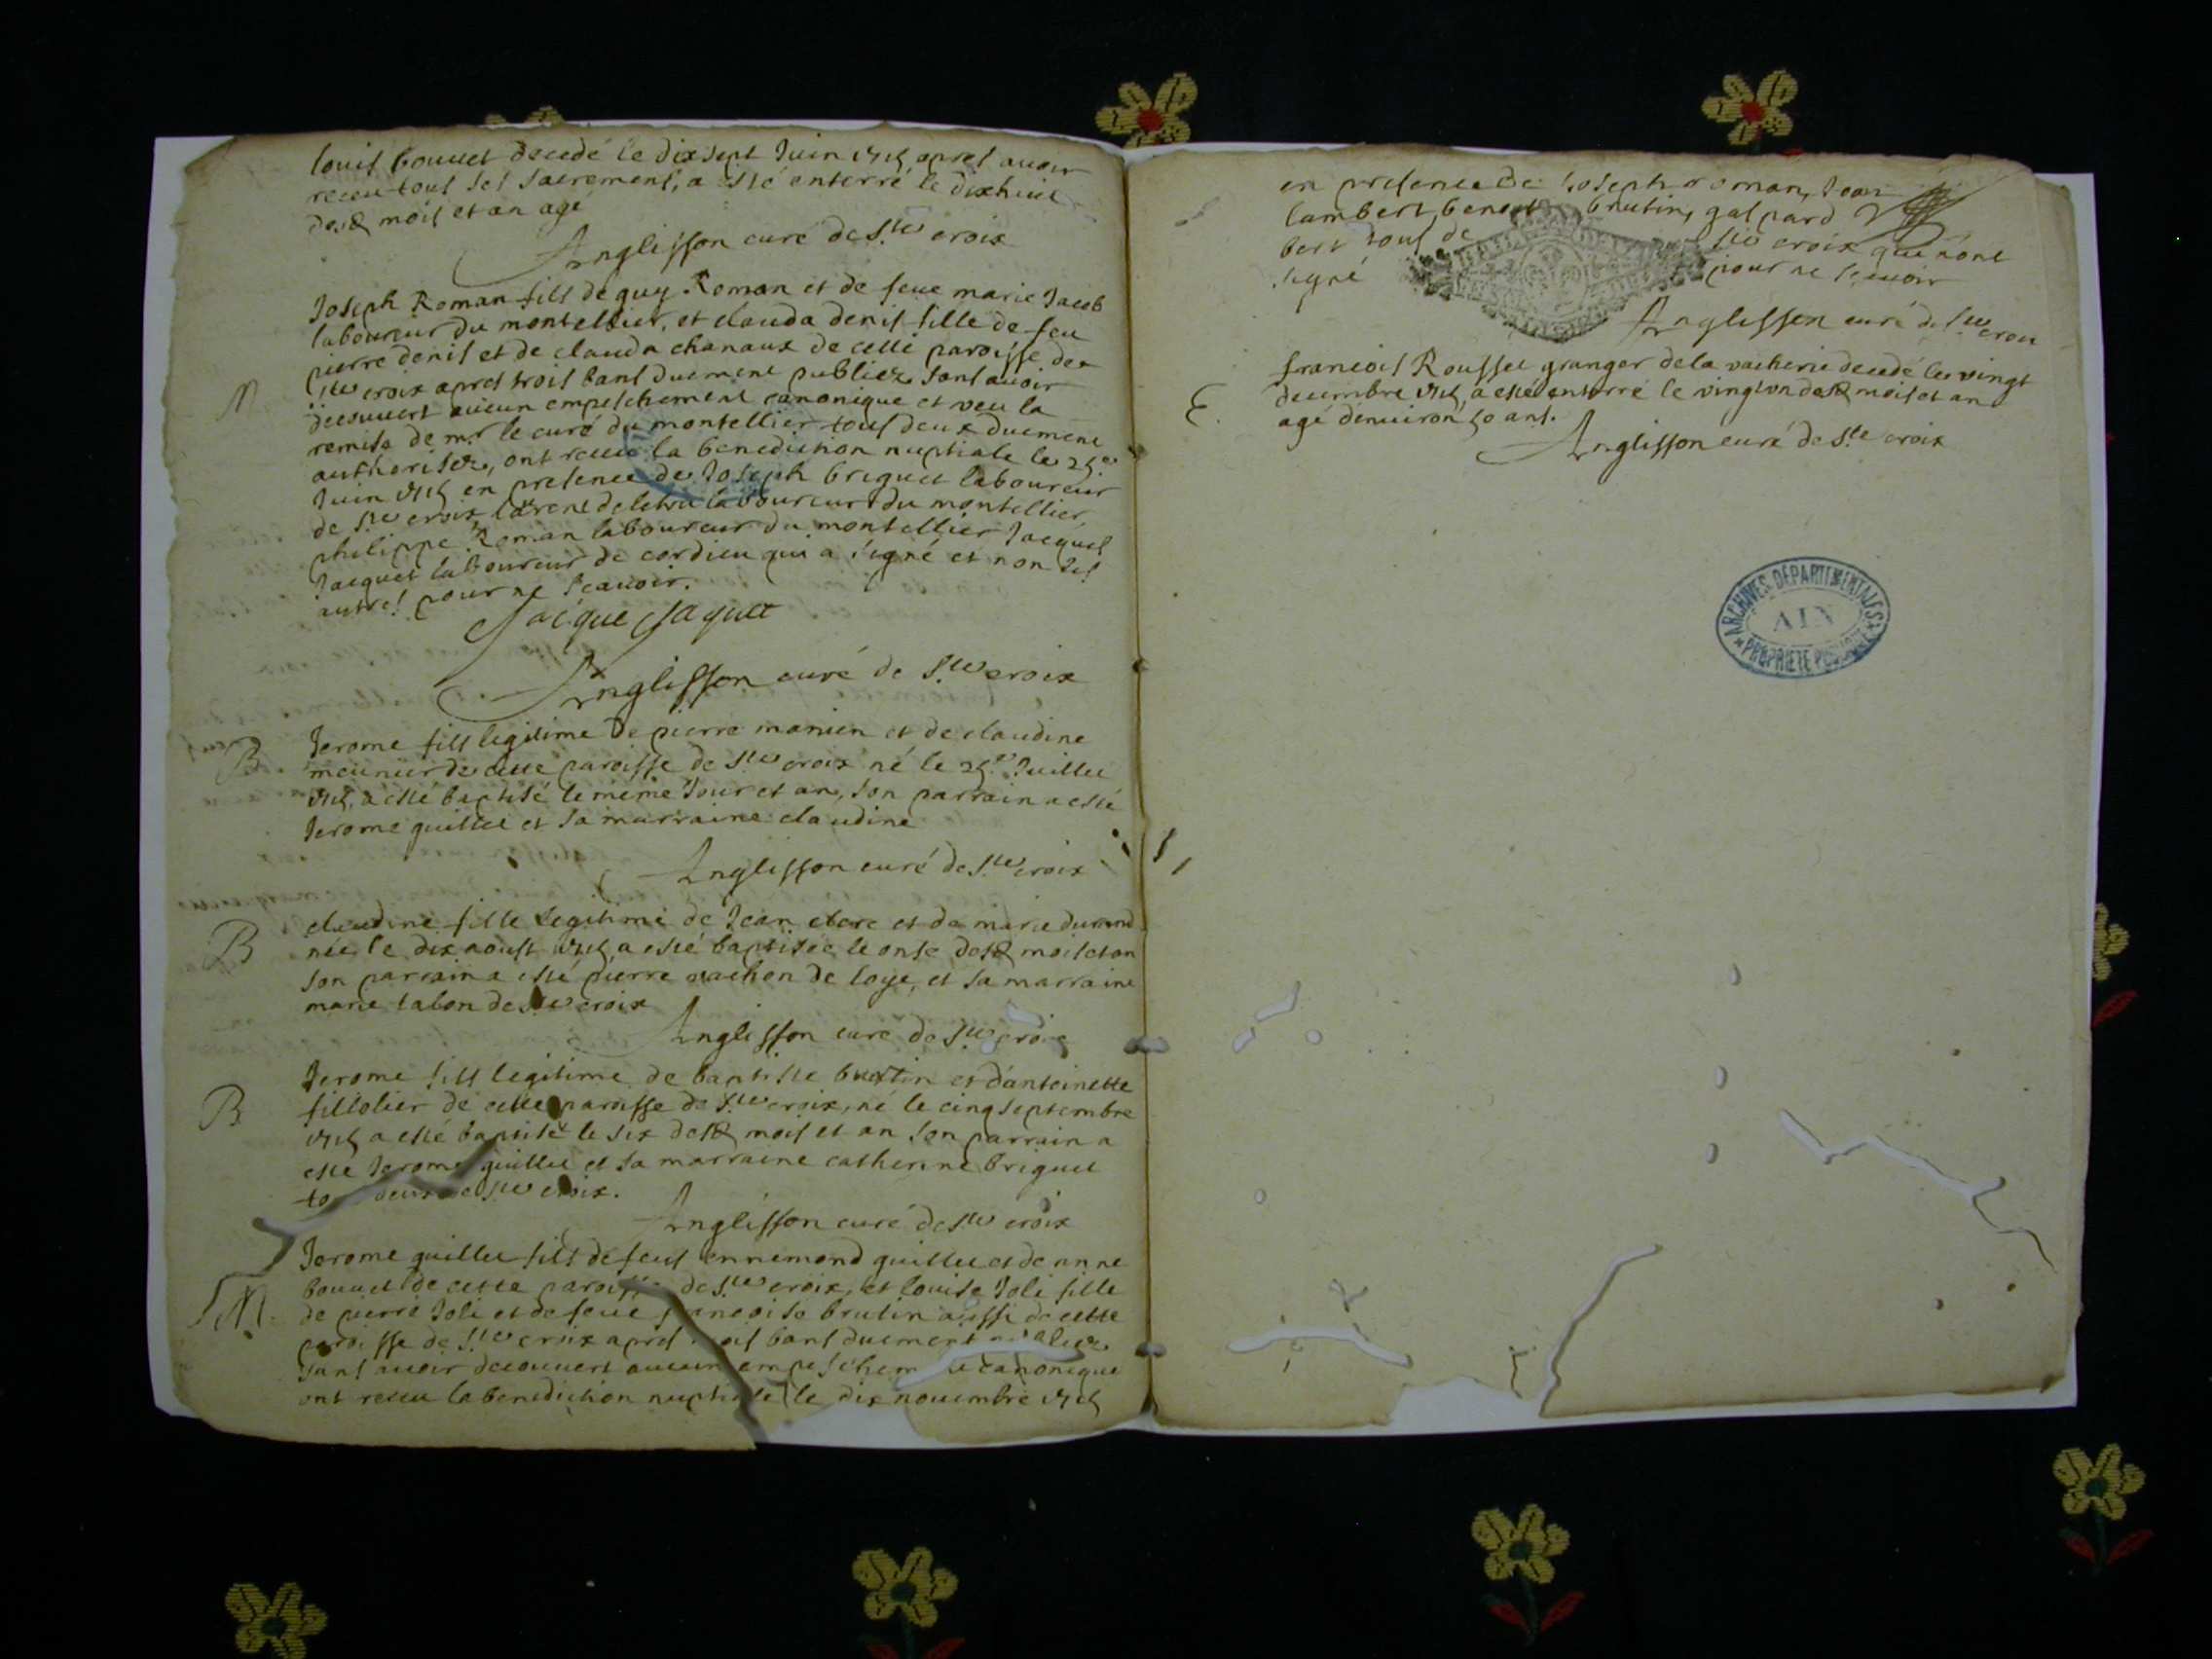 louis bouuet decedé le dixsept Juin 1715 apres auoir
receu tous ses sacremens, a esté enterré le dixhuit
desd mois et an agé
Anglisson curé de Ste croix
Joseph Roman fils de guy Roman et de feue marie Jacob
laboureur du montellier, et clauda denis fille de feu
pierre denis et de clauda chanaux de cette paroisse de
Ste croix apres trois bans duement publiez sans auoir
decouuert aucun empeschement canonique et veu la
M
remise de mr le curé du montellier tous deux duement
authorisez, ont receu la benediction nuptiale le 25e
Juin 1715 en presence de Joseph briguet laboureur
de Ste croix, laurent laboureur du montellier,
philippe Roman laboureur du montellier Jacques
Jacquet laboureur de cordieu qui a signé et non les
autres pour ne scauoir.
Jacque Jaquet
Anglisson curé de Ste croix
B
Jerome fils legitime de pierre manien et de claudine
meunier de cette paroisse de Ste croix né le 25e Juillet
1715, a esté baptisé le méme Jour et an, son parrain a esté
Jerome guillet et sa marraine claudine
Anglisson curé de Ste croix
B
claudine fille legitime de Jean clerc et de marie durand
née le dix aoust 1715, a esté baptisée le onse desd mois et an
son parrain a esté pierre vachon de loye, et sa marraine
marie talon de Ste croix
Anglisson curé de Ste croix
B
Jerome fils legitime de baptiste brutin et d'antoinette
fillolier de cette paroisse de Ste croix, né le cinq septembre
1715 a esté baptisé le six desd mois et an son parrain a
esté Jerome guillet et sa marraine catherine briguet
deux de Ste croix.
Anglisson curé de Ste croix
M
Jerome guillet fils de feus ennemond guillet et de anne
bouuet de cette paroisse de Ste croix, et louise Joli fille
de pierre Joli et de feue francoise brutin aussi de cette
paroisse de Ste croix apres bans duement
sans auoir decouuert aucun canonique
ont receu la benediction nuptiale le dix nouembre 1715
en presence de Joseph roman, Jean
lambert, benoit brutin, gaspard
bert tous de Ste croix qui n'ont
signé pour ne scauoir
Anglisson curé de Ste croix
E.
francois Rousset granger de la vacherie decedé le vingt
decembre 1715, a esté enterré le vingt vn desd mois et an
agé d'enuiron 50 ans.
Anglisson curé de Ste croix
ARCHIVES DEPARTEMENTALES
AIN
PROPRIETE PUBLIQUE